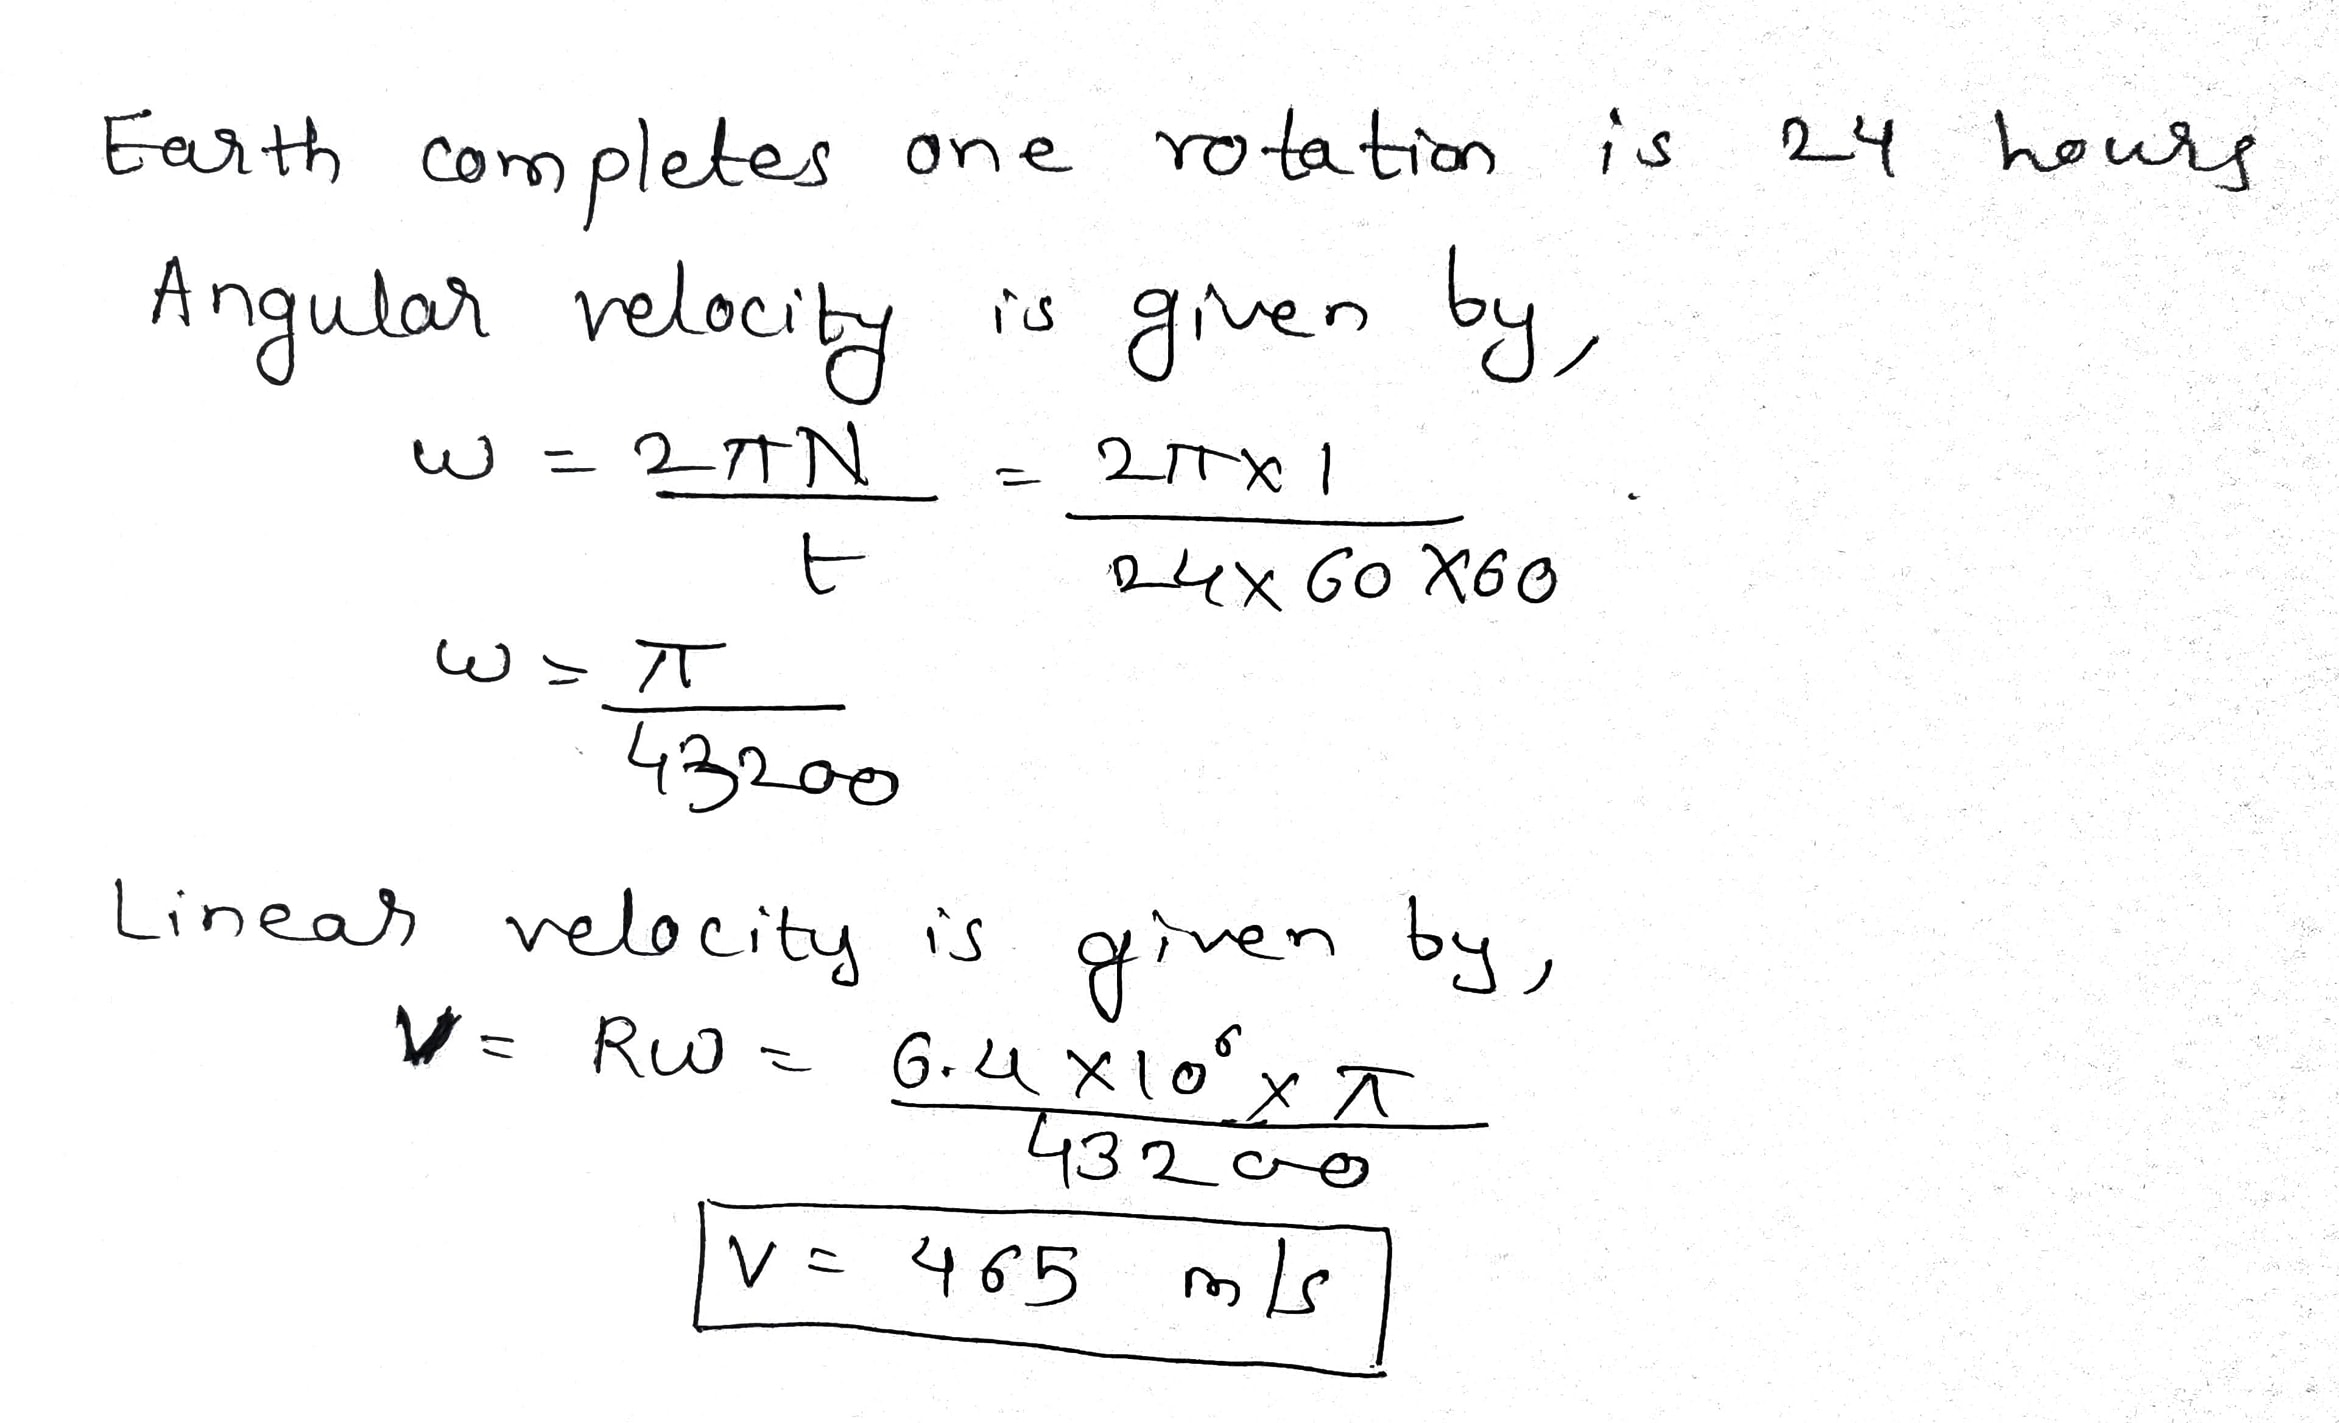 Earth completes one rotation is 24 hours
Angular velocity is given by,
ω = 2πN / t = 2π×1 / 24×60×60
ω = π / 43200
Linear velocity is given by,
V = Rω = 6.4×10⁶×π / 43200
V = 465 m/s